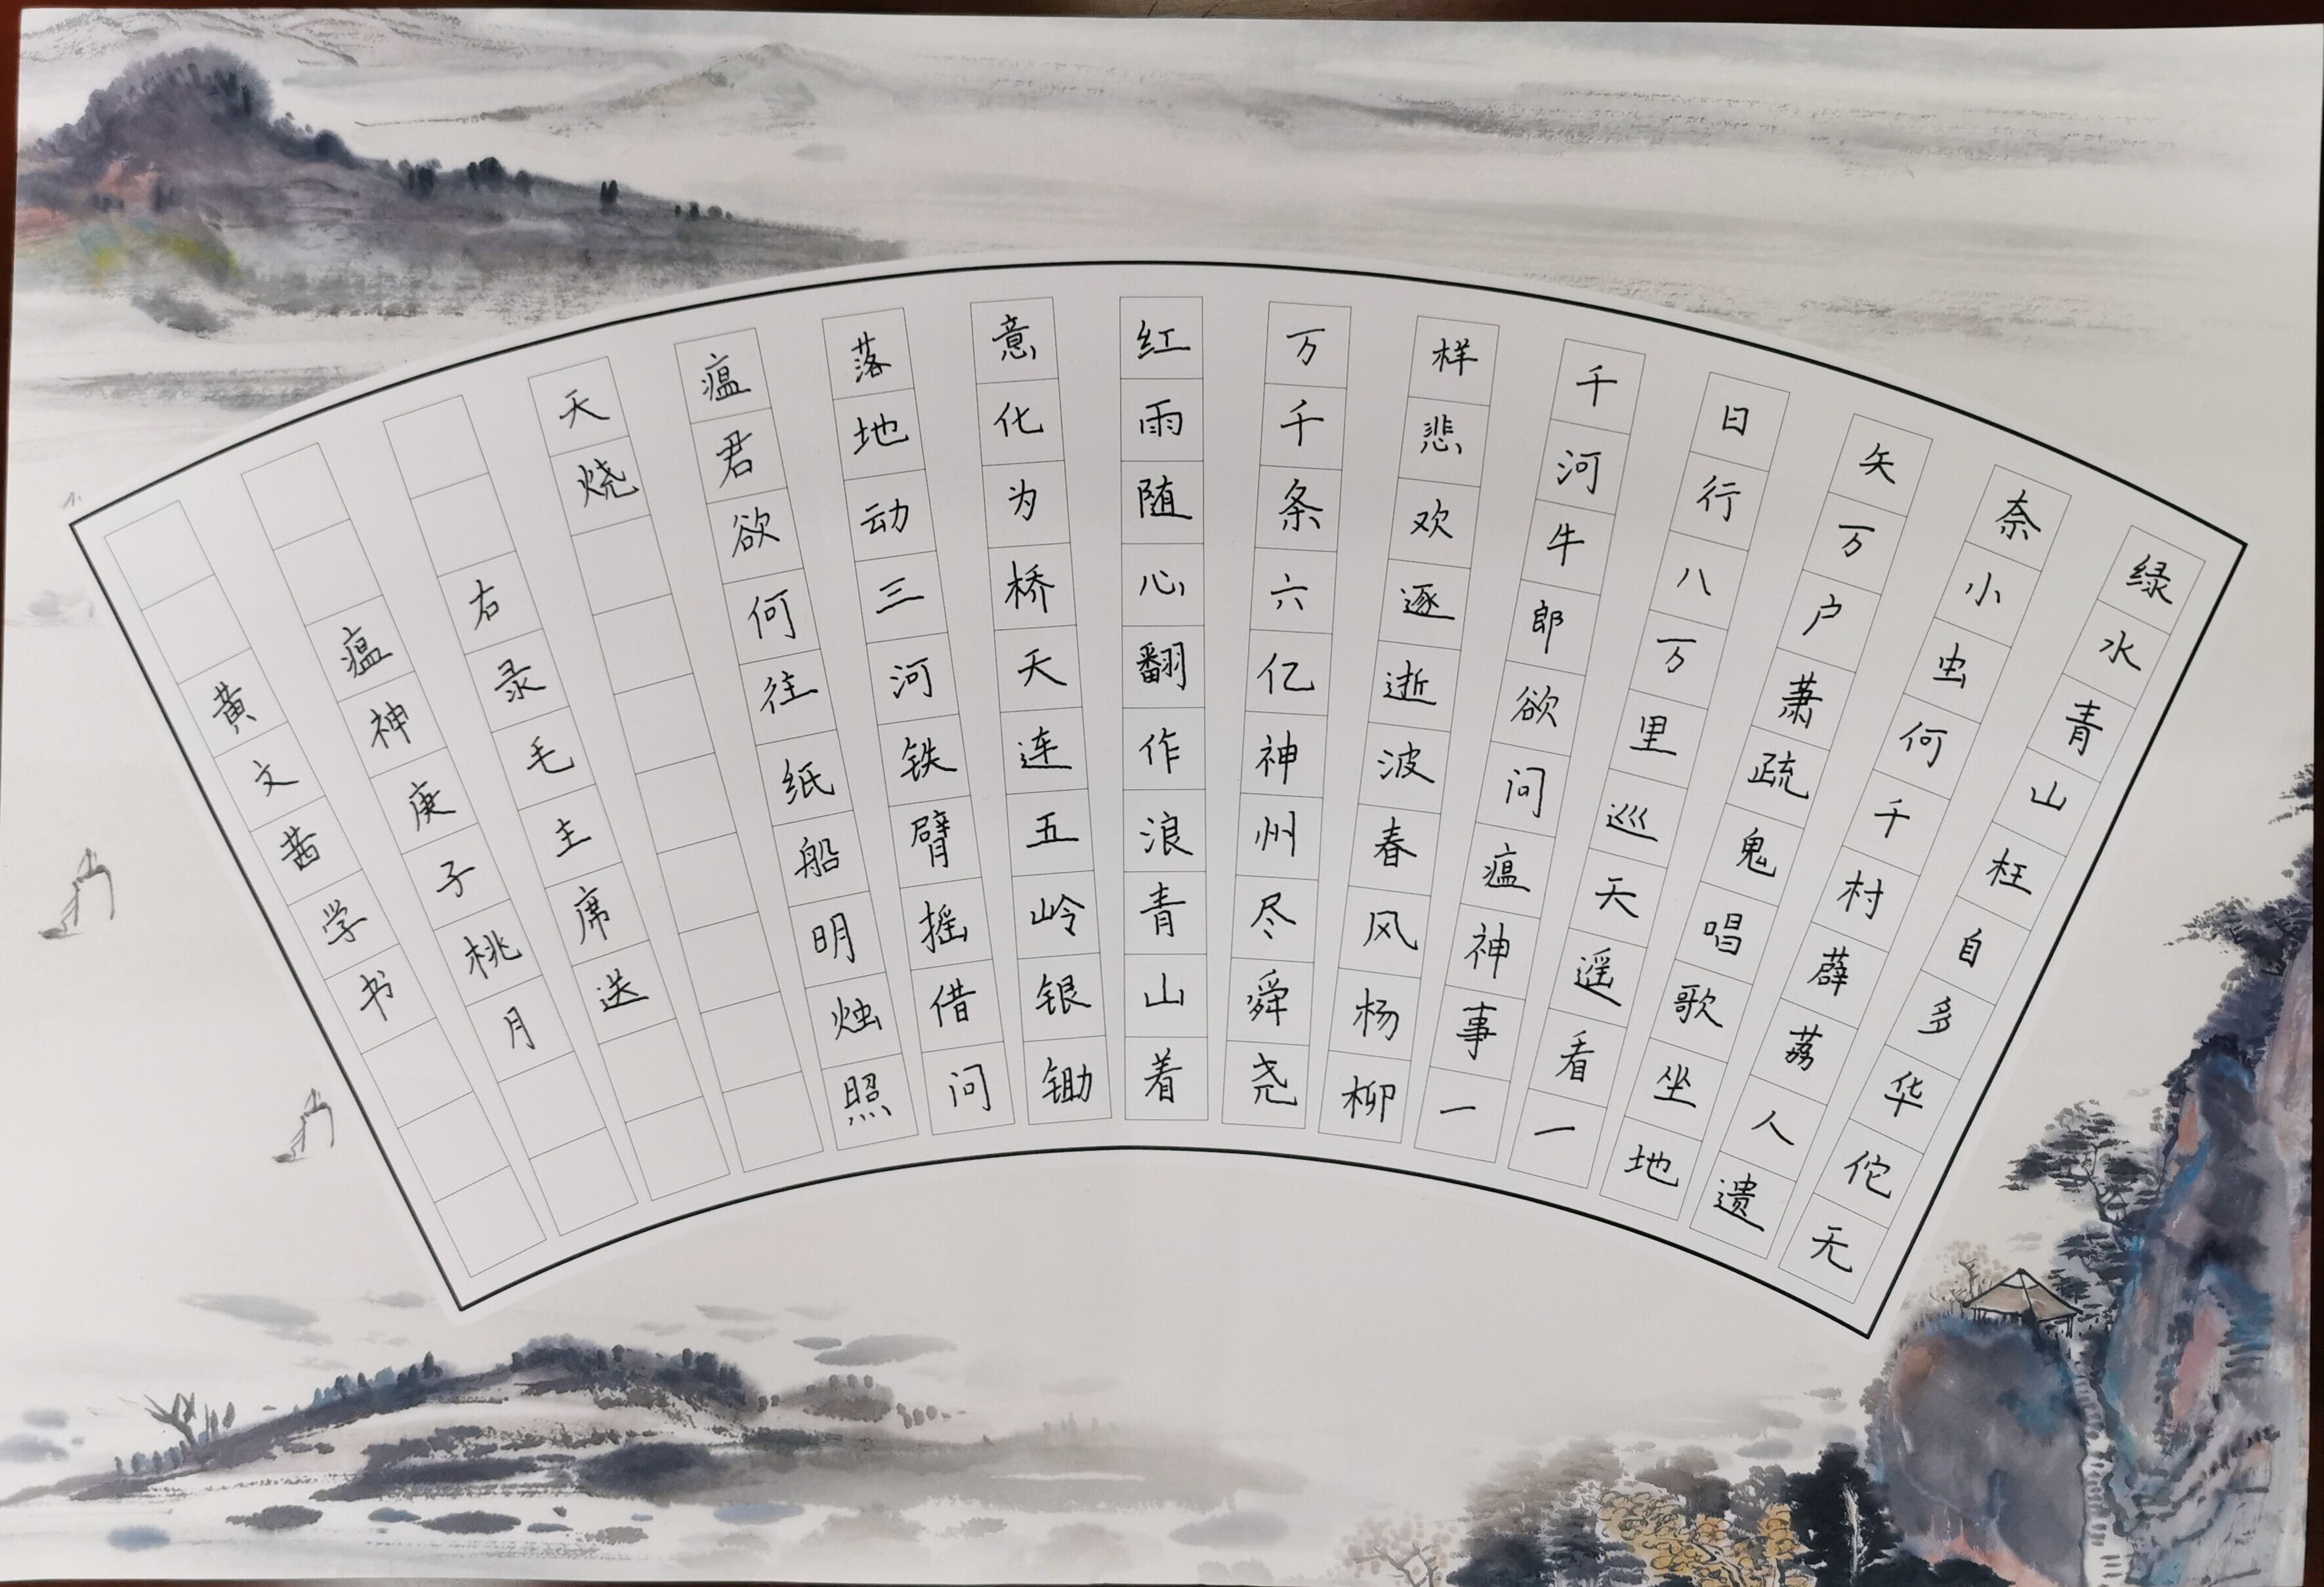 绿水青山枉自多华佗无
奈小虫何千村薜荔人遗
矢万户萧疏鬼唱歌坐地
日行八万里巡天遥看一
千河牛郎欲问瘟神事一
样悲欢逐逝波春风杨柳
万千条六亿神州尽舜尧
红雨随心翻作浪青山着
意化为桥天连五岭银锄
落地动三河铁臂摇借问
瘟君欲何往纸船明烛照
天烧
右录毛主席送
瘟神庚子桃月
黄文茜学书